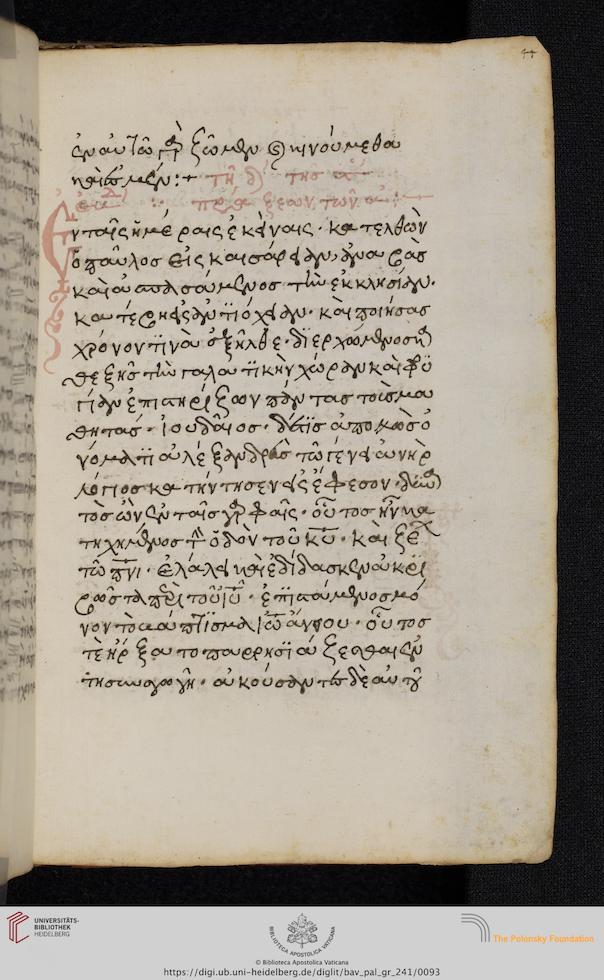 44
ἐν αὐτῶ γὰρ ζῶμεν καὶ κινούμεθα
καὶ ἐσμέν:+ τῆ δ τῆς
πράξεων τῶν ἀ
Ἐν ταῖς ἡμέραις ἐκείναις· κατελθὼν
ὁ παῦλος εἰς καισάρειαν, ἀναβὰς
καὶ ἀσπασάμενος τὴν ἐκκλησίαν·
κατέβη εἰς ἀντιόχειαν· καὶ ποιήσας
χρόνον τινὰ ἐξῆλθε· διερχόμενος κα
θεξῆς τὴν γαλατικὴν χώραν καὶ φρυ
γίαν ἐπιστηρίζων πάντας τοὺς μα
θητάς· ἰουδαῖος δέ τις ἀπολλὼς ὀ
νόματι ἀλεξανδρεὺς τῶ γένει ἀνὴρ
λόγιος κατήντησεν εἰς ἔφεσον· δυνα
τὸς ὢν ἐν ταῖς γραφαῖς· οὗτος ἦν κα
τηχημένος τὴν ὁδὸν τοῦ κυ· καὶ ζέων
τῶ πνι· ἐλάλει καὶ ἐδίδασκεν ἀκρι
βῶς τὰ περὶ τοῦ ιυ· ἐπιστάμενος μό
νον τὸ βάπτισμα ιω άννου· οὗτός
τε ἤρξατο παρρησιάζεσθαι ἐν
τῆ συναγωγῆ· ἀκούσαντες δὲ αὐτοῦ
UNIVERSITÄTS-
BIBLIOTHEK
HEIDELBERG
BIBLIOTECA APOSTOLICA VATICANA
© Biblioteca Apostolica Vaticana
The Polonsky Foundation
https://digi.ub.uni-heidelberg.de/diglit/bav_pal_gr_241/0093